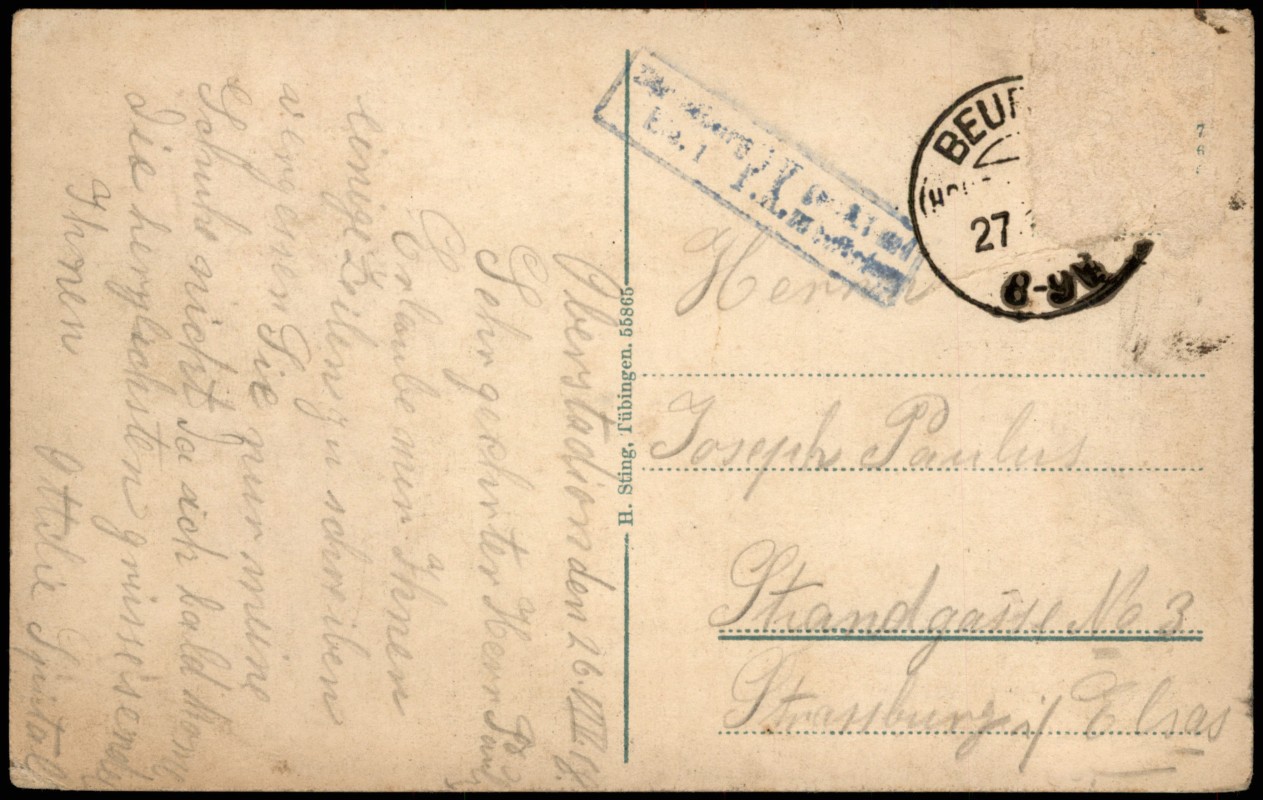 Oberstadion den 26. VIII. 18.
Sehr geehrter Herr
Erlaube mir Ihnen
einige Zeilen zu schreiben
Sie nur meine
Schuhe nicht Da ich bald kome
Die herzlichsten grüsse sendet
Ihnen Ottilie
H. Sting, Tübingen. 55865
P.K.
BEUR
27.
8-9V
7
6
Herrn
Joseph Paulus
Strandgasse No 3
Strassburg i/ Elsas